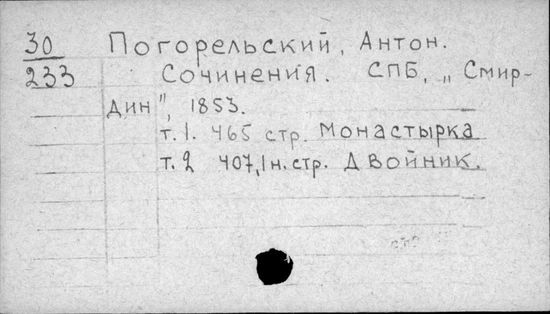 30 Погорельский, Антон.
233 Сочинения. СПБ, „Смир-
дин", 1853.
т.1. 465 стр. Монастырка
т.2 407,1н.стр. Двойник.